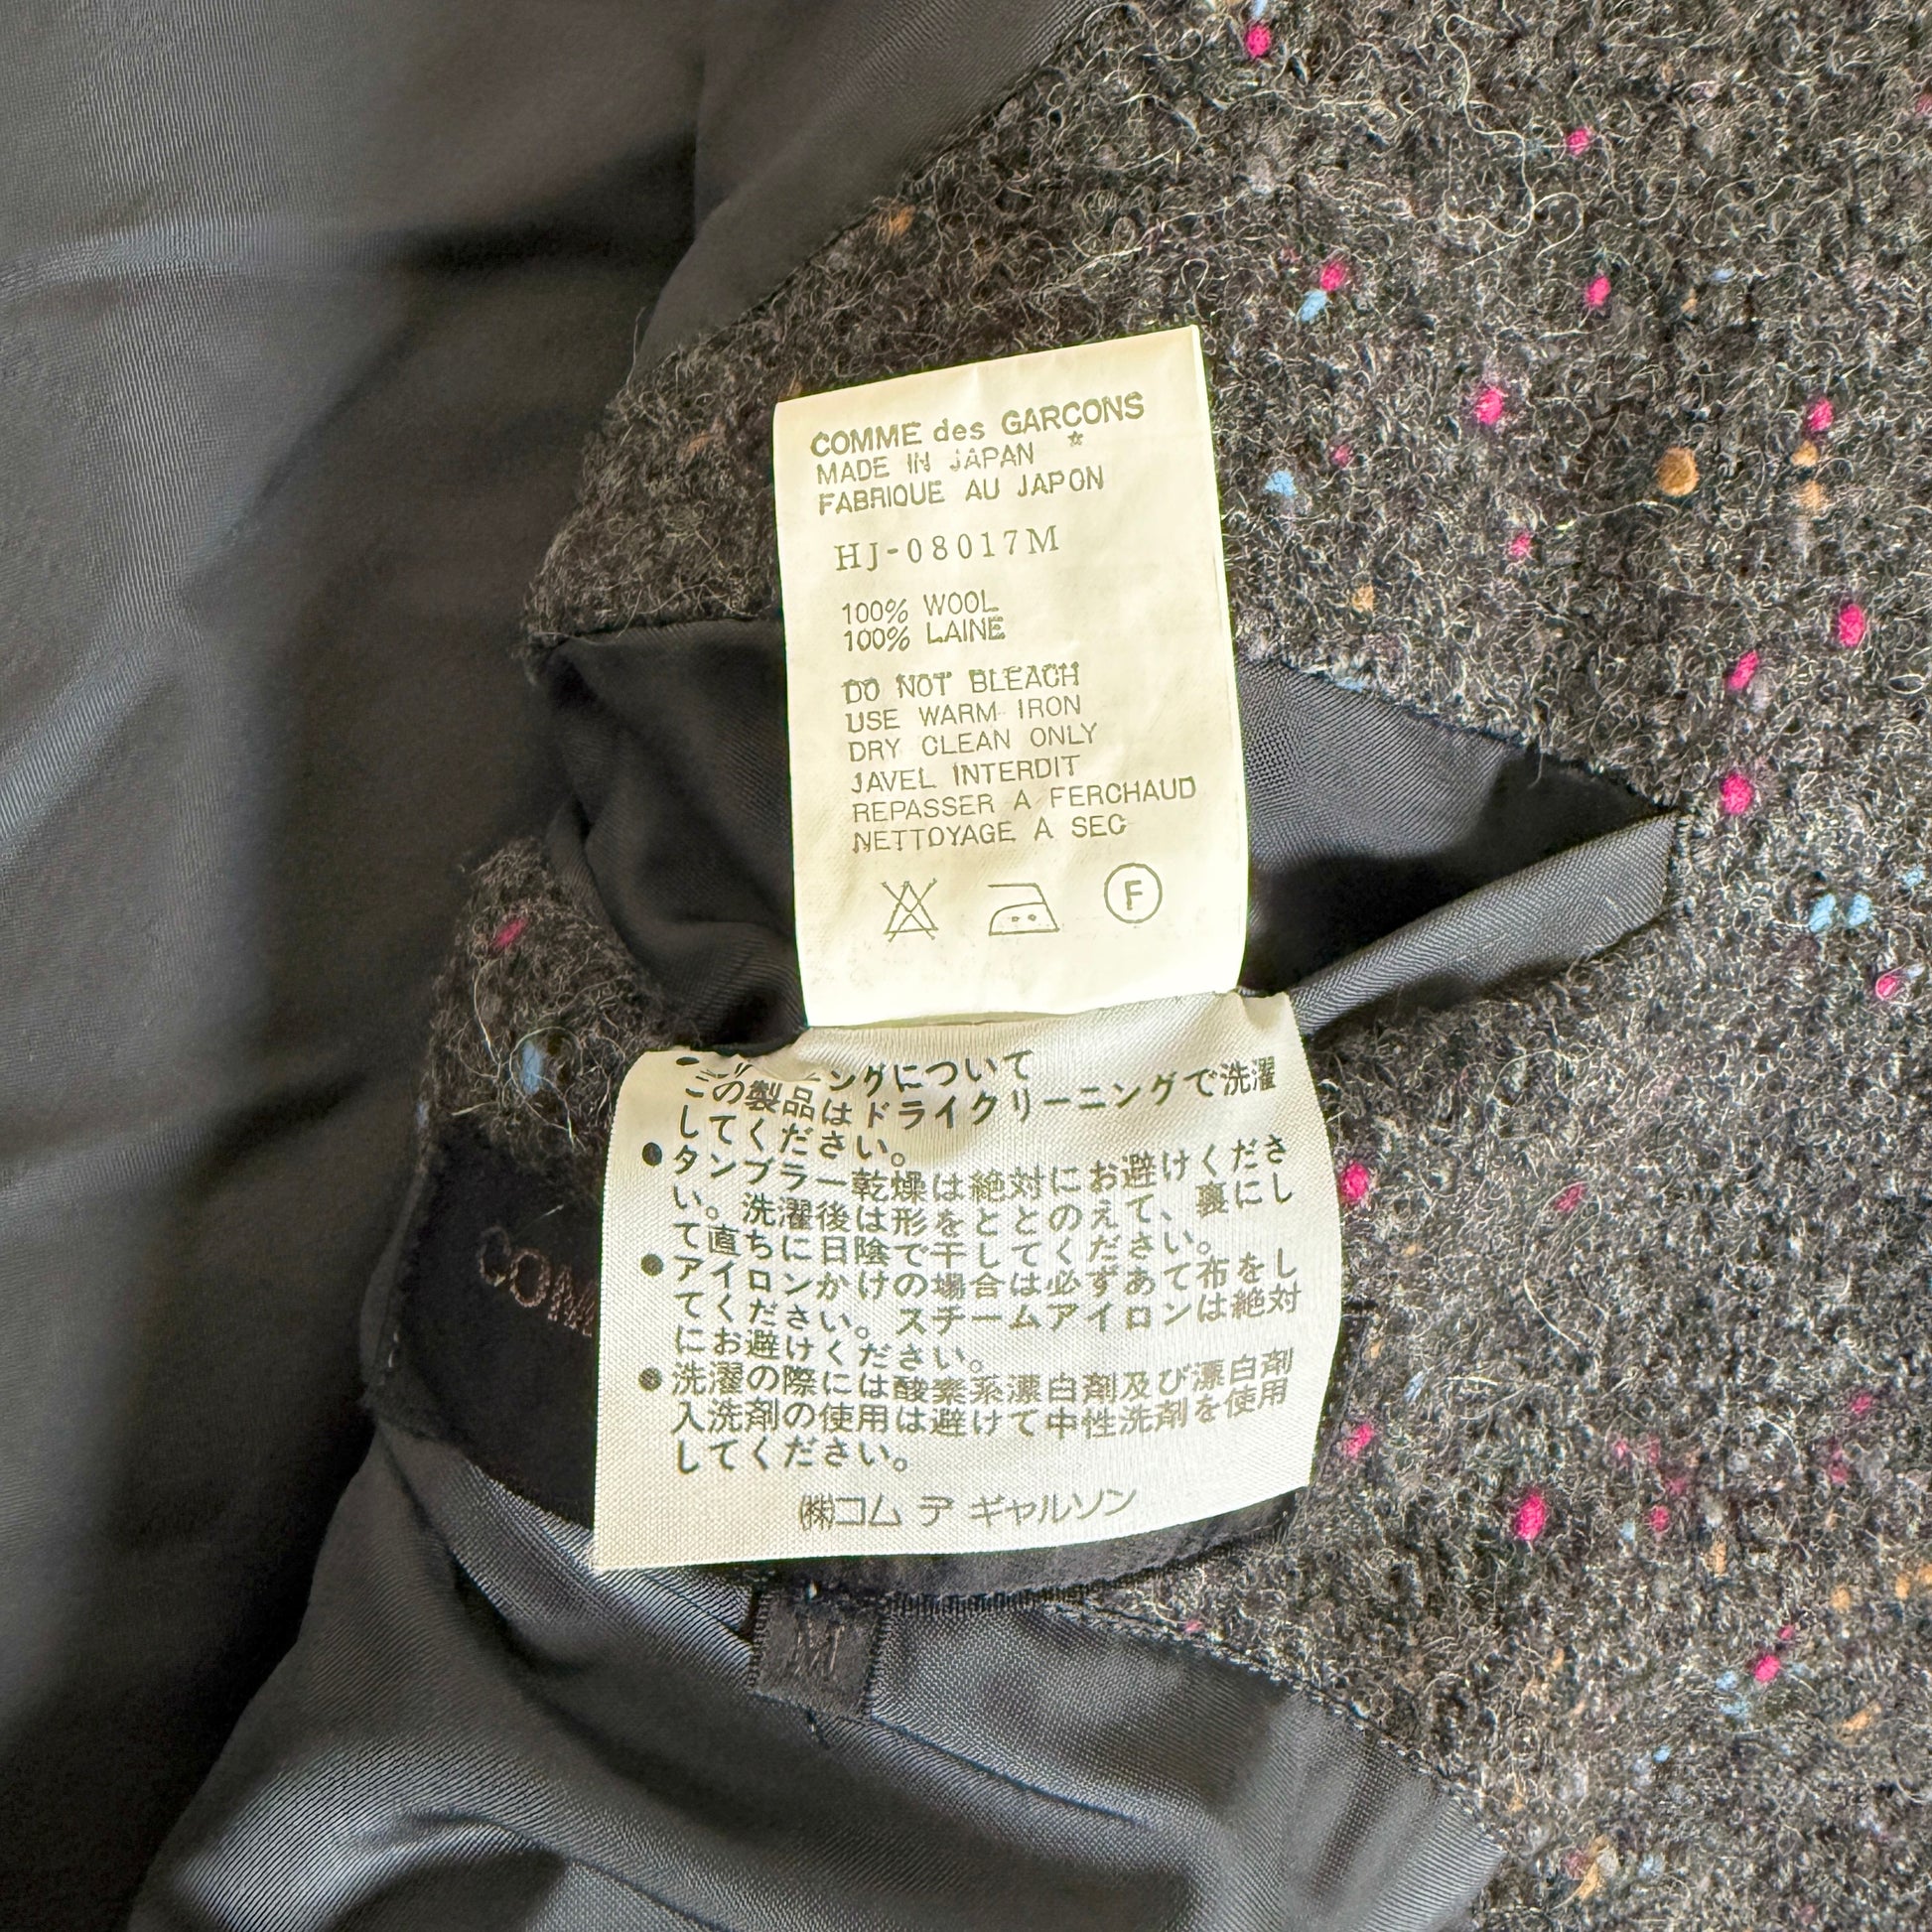 COMME des GARCONS
*
MADE IN JAPAN
FABRIQUE AU JAPON
HJ-08017M
100% WOOL
100% LAINE
DO NOT BLEACH
USE WARM IRON
DRY CLEAN ONLY
JAVEL INTERDIT
REPASSER A FERCHAUD
NETTOYAGE A SEC
F
ングについて
この製品はドライクリーニングで洗濯
してください。
●タンブラー乾燥は絶対にお避けくださ
い。洗濯後は形をととのえて、裏にし
て直ちに日陰で干してください。
●アイロンかけの場合は必ずあて布をし
てください。スチームアイロンは絶対
にお避けください。
●洗濯の際には酸素系漂白剤及び漂白剤
入洗剤の使用は避けて中性洗剤を使用
してください。
㈱コム デ ギャルソン
COM
M